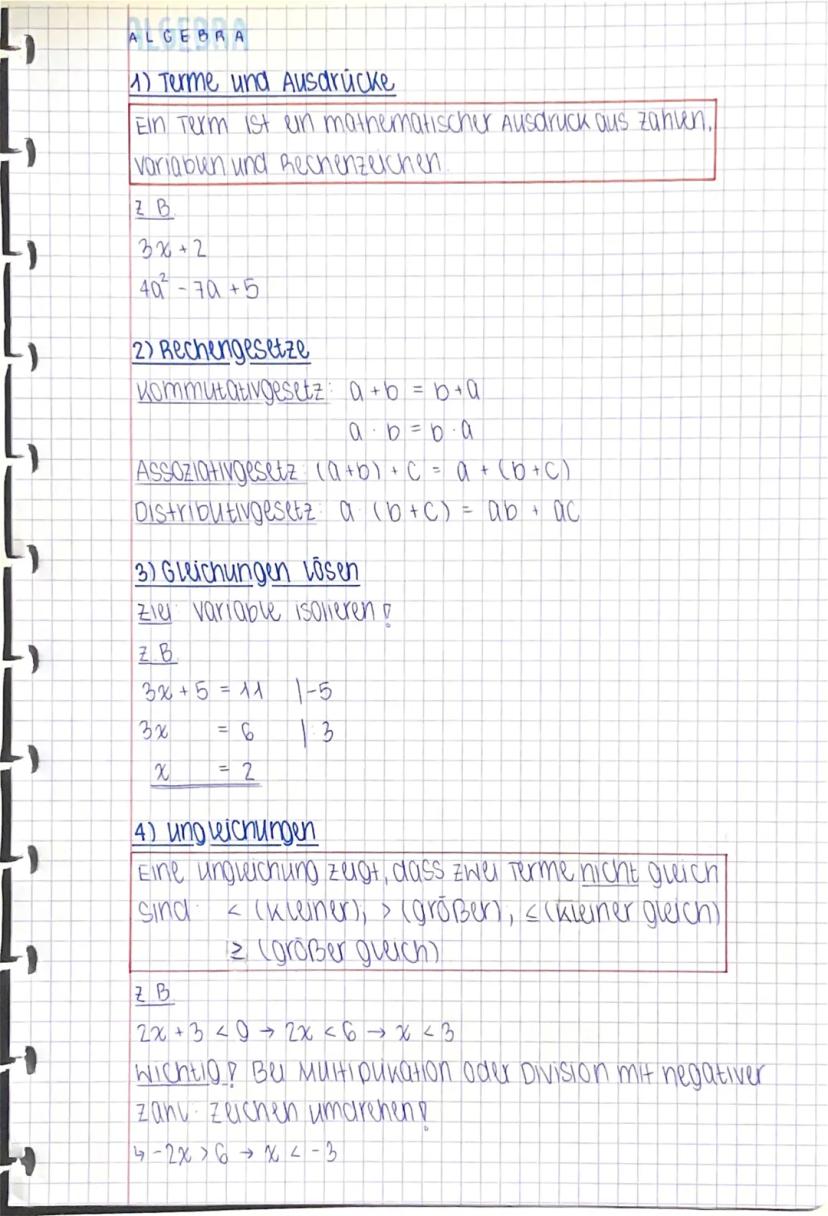 ALGEBRA
1) Terme und Ausdrücke
Ein Term ist ein mathematischer Ausdruck aus Zahlen,
Variablen und Rechenzeichen.
z.B.
3x + 2
4a² - 7a + 5
2) Rechengesetze
Kommutativgesetz: a + b = b + a
a · b = b · a
Assoziativgesetz: (a+b) + c = a + (b+c)
Distributivgesetz: a · (b+c) = ab + ac
3) Gleichungen lösen
Ziel: Variable isolieren!
z.B.
3x + 5 = 11 |-5
3x = 6 |:3
x = 2
4) Ungleichungen
Eine Ungleichung zeigt, dass zwei Terme nicht gleich
sind: < (kleiner), > (größer), ≤ (kleiner gleich)
≥ (größer gleich)
z.B.
2x + 3 < 9 → 2x < 6 → x < 3
Wichtig! Bei Multiplikation oder Division mit negativer
Zahl: Zeichen umdrehen!
↳ -2x > 6 → x < -3